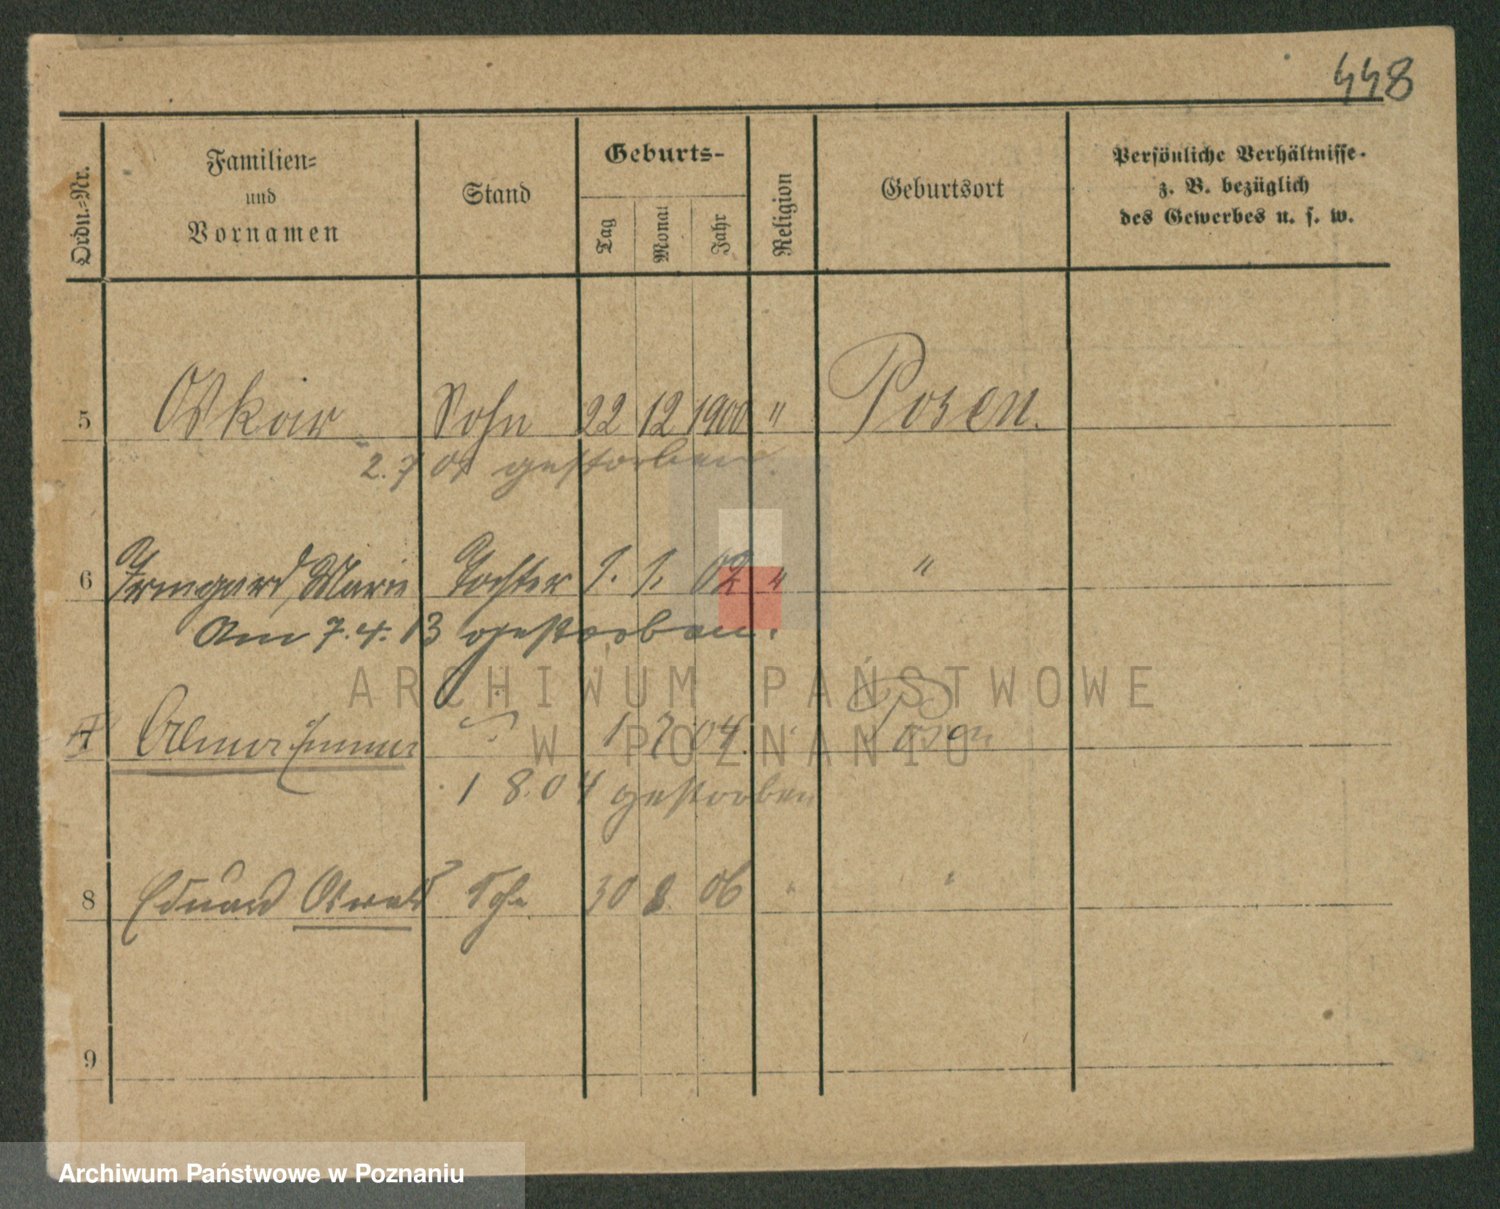 448
Ordn.-Nr.
Familien-
und
Vornamen
Stand
Geburts-
Tag
Monat
Jahr
Religion
Geburtsort
Persönliche Verhältnisse.
z. B. bezüglich
des Gewerbes u. s. w.
5 Oskar Sohn 22 12 1900 " Posen.
2. 7 01 gestorben.
6 Irmgard Marie Tochter 1. 1. 02 " "
Am 7. 4. 13 gestorben.
ARCHIWUM PAŃSTWOWE
7 1 7 04. Posen
W POZNANIU
1 8. 04 gestorben
8 Eduard Oswald Sohn 30 8. 06 " "
9
Archiwum Państwowe w Poznaniu